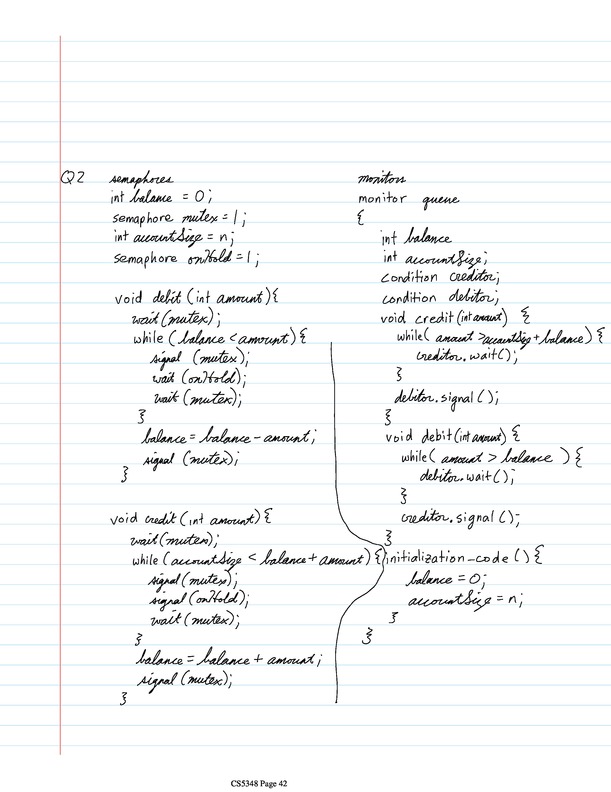 Q2 semaphores
int balance = 0;
semaphore mutex = 1;
int accountSize = n;
semaphore onHold = 1;
void debit (int amount) {
wait (mutex);
while (balance < amount) {
signal (mutex);
wait (onHold);
wait (mutex);
}
balance = balance - amount;
signal (mutex);
}
void credit (int amount) {
wait (mutex);
while (accountSize < balance + amount) {
signal (mutex);
signal (onHold);
wait (mutex);
}
balance = balance + amount;
signal (mutex);
}
monitors
monitor queue
{
int balance
int accountSize;
condition creditor;
condition debitor;
void credit (int amount) {
while( amount > accountSize + balance) {
creditor.wait();
}
debitor.signal();
}
void debit (int amount) {
while( amount > balance ) {
debitor.wait();
}
creditor.signal();
}
initialization_code () {
balance = 0;
accountSize = n;
}
}
CS5348 Page 42